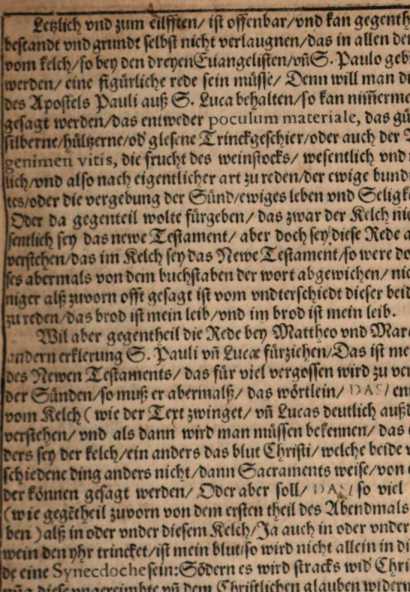 Letzlich vnd zum eilfften/ ist offenbar/ vnd kan gegenth
bestandt vnd grundt selbst nicht verlaugnen/ das in allen den
vom kelch/ so bey den dreyen Euangelisten/ vñ S. Paulo geb
werden/ eine figürliche rede sein müsse/ Denn will man di
des Apostels Pauli auß S. Luca behalten/ so kan nim̃erme
gesagt werden/ das entweder poculum materiale, das gü
silberne/ hültzerne/ od' glesene Trinckgeschier/ oder auch der
genimen vitis, die frucht des weinstocks/ wesentlich vnd
lich/ vnd also nach eigentlicher art zu reden/ der ewige bund
tes/ oder die vergebung der Sünd/ ewiges leben vnd Seligk
Oder da gegenteil wolte fürgeben/ das zwar der Kelch nic
sentlich sey das newe Testament/ aber doch sey diese Rede a
verstehen/ das im Kelch sey das Newe Testament/ so were do
ses abermals von dem buchstaben der wort abgewichen/ nic
niger alß zuvorn offt gesagt ist vom vndterschiedt dieser beid
zu reden/ das brod ist mein leib/ vnd im brod ist mein leib.
Wil aber gegentheil die Rede bey Mattheo vnd Mar
andern erklerung S. Pauli vñ Lucæ fürziehen/ Das ist me
des Newen Testaments/ das für viel vergossen wird zu ver
der Sünden/ so muß er abermalß/ das wörtlein/ DAS/ en
vom Kelch ( wie der Text zwinget/ vñ Lucas deutlich außl
verstehen/ vnd als dann wird man müssen bekennen/ das
ders sey der kelch/ ein anders das blut Christi/ welche beide v
schiedene ding anders nicht/ dann Sacraments weise/ von
der können gesagt werden/ Oder aber soll/ DAS/ so viel
( wie gegẽtheil zuvorn von dem ersten theil des Abendmals
ben ) alß in oder vnder diesem Kelch/ Ja auch in oder vnder
wein den yhr trincket/ ist mein blut/ so wird nicht allein in di
de eine Synecdoche sein: Sõdern es wird stracks wid' Chri
diese vngereimbte vñ dem Christlichen glauben widern